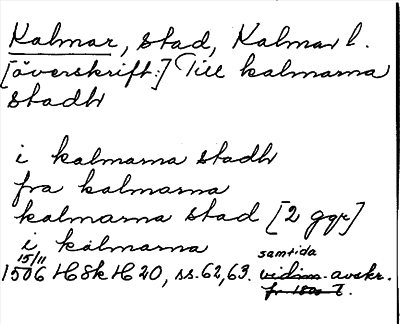 Kalmar, stad, Kalmar l.
[överskrift:] Till kalmarna
stadh
i kalmarna stadh
fra kalmarna
kalmarna stad [2 ggr]
i kalmarna
15/11 samtida
1506 HSkH 20, ss. 62, 63. vidim. avskr.
fr 1800 t.